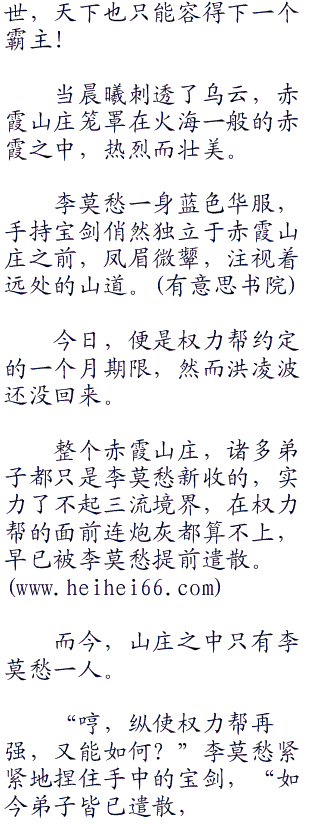 世，天下也只能容得下一个
霸主！
当晨曦刺透了乌云，赤
霞山庄笼罩在火海一般的赤
霞之中，热烈而壮美。
李莫愁一身蓝色华服，
手持宝剑俏然独立于赤霞山
庄之前，凤眉微颦，注视着
远处的山道。(有意思书院)
今日，便是权力帮约定
的一个月期限，然而洪凌波
还没回来。
整个赤霞山庄，诸多弟
子都只是李莫愁新收的，实
力了不起三流境界，在权力
帮的面前连炮灰都算不上，
早已被李莫愁提前遣散。
(www.heihei66.com)
而今，山庄之中只有李
莫愁一人。
“哼，纵使权力帮再
强，又能如何？”李莫愁紧
紧地捏住手中的宝剑，“如
今弟子皆已遣散，